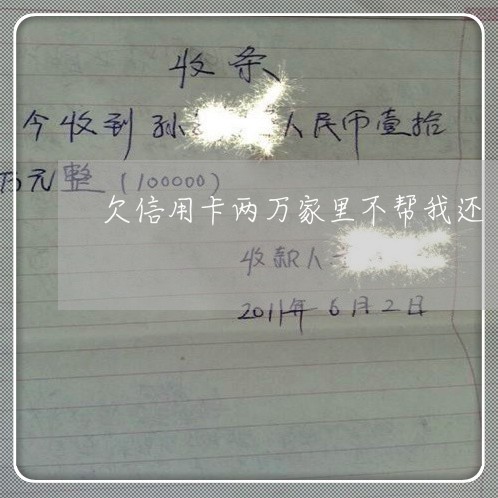 收条
今收到孙 人民币壹拾
万元整(100000)
欠信用卡两万家里不帮我还
收款人
2011年6月2日